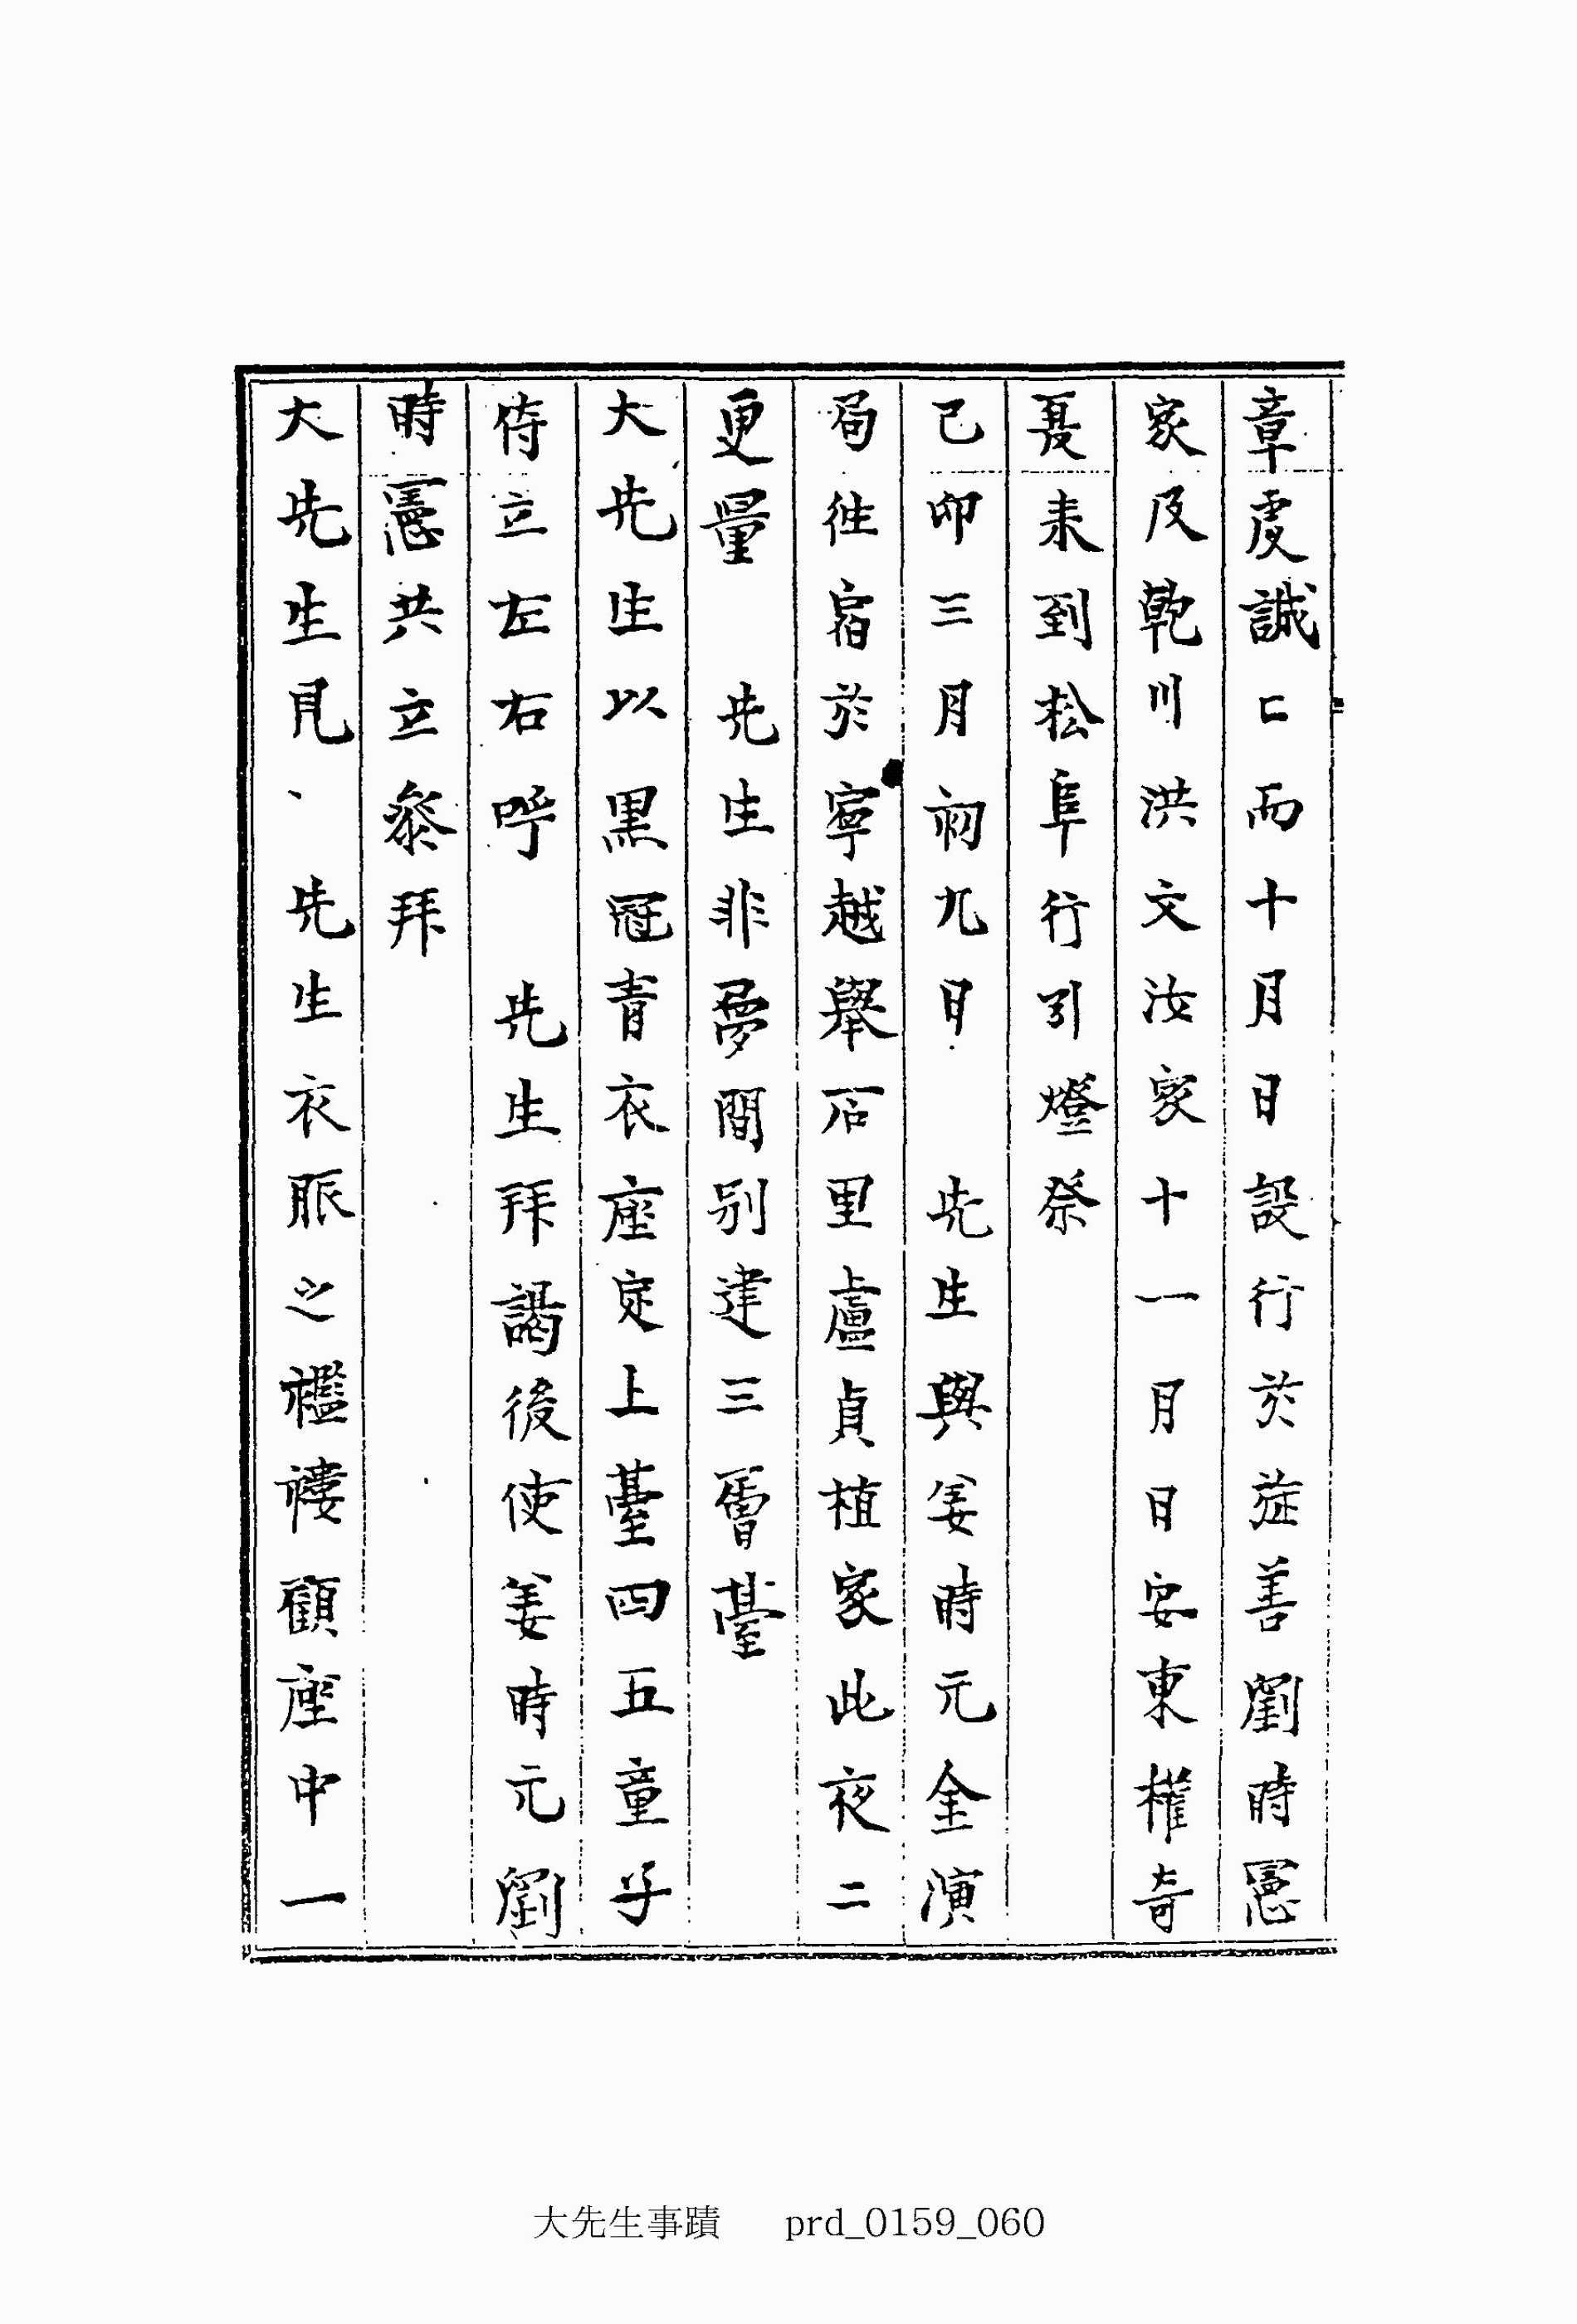 章虔誠已而十月日設行於旌善劉時憲
家及乾川洪文汝家十一月日安東權奇
夏來到松阜行引燈祭
己卯三月初九日　先生與姜時元金演
局往宿於寧越擧石里盧貞植家此夜二
更量　先生非夢間別建三層臺
大先生以黑冠靑衣座定上臺四五童子
侍立左右呼　先生拜謁後使姜時元劉
時憲共立參拜
大先生見、先生衣脈之襤褸顧座中一
大先生事蹟　prd_0159_060